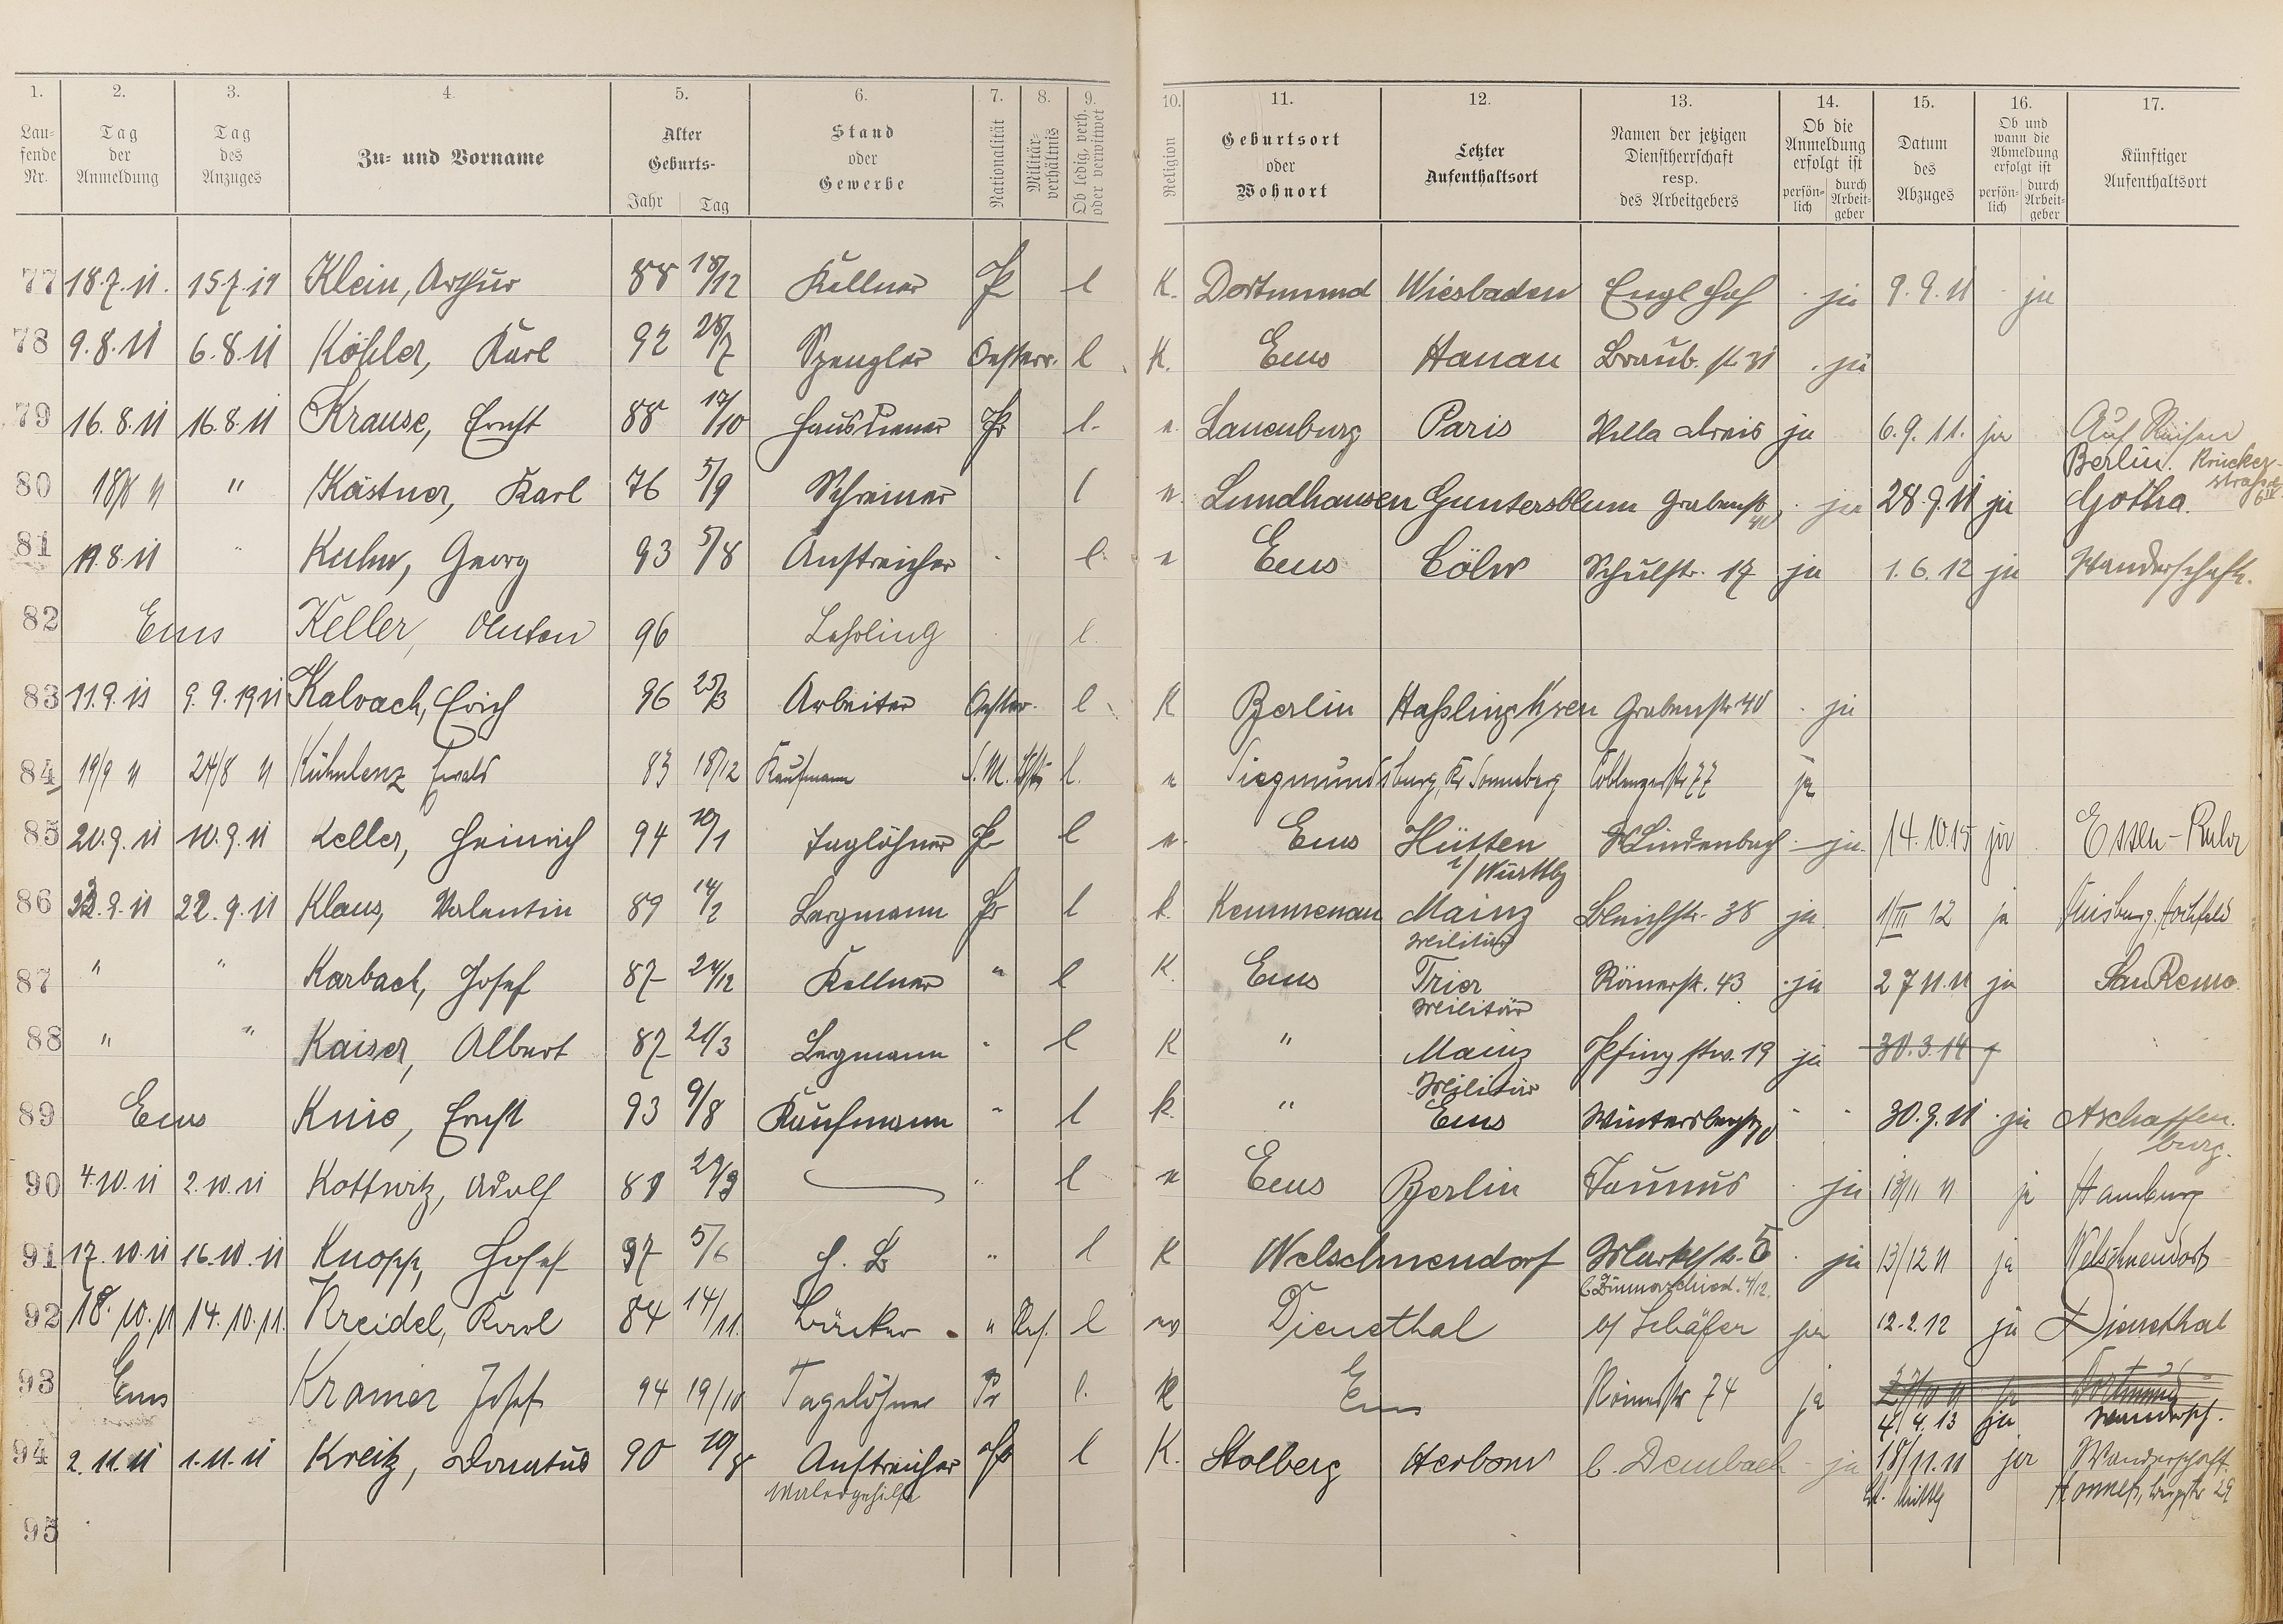 1. 2. 3. 4. 5. 6. 7. 8. 9. 10. 11. 12. 13. 14. 15. 16. 17.
Laufende Nr. Tag der Anmeldung Tag des Anzuges Zu- und Vorname Alter Geburts- Jahr Tag Stand oder Gewerbe Nationalität Militärverhältnis Ob ledig, verh. oder verwitwet Religion Geburtsort oder Wohnort Letzter Aufenthaltsort Namen der jetzigen Dienstherrschaft resp. des Arbeitgebers Ob die Anmeldung erfolgt ist persönlich durch Arbeitgeber Datum des Abzuges Ob und wann die Abmeldung erfolgt ist persönlich durch Arbeitgeber Künftiger Aufenthaltsort
77 18.7.11. 15.7.11 Klein, Arthur 88 18/12 Kellner Pr l K. Dortmund Wiesbaden Engl Hof ja 9.9.11 ja
78 9.8.11 6.8.11 Köhler, Karl 92 28/7 Spengler Oesterr. l K. Ems Hanau Braub. str 31 ja
79 16.8.11 16.8.11 Krause, Ernst 88 17/10 Hausdiener Pr l. e. Lauenburg Paris Villa ja 6.9.11. ja Auf Reisen
Berlin. Krucker-
strasse
80 18/8 11 " Kästner, Karl 76 5/9 Schreiner l e. Lundhausen Guntersblum Grabenstr ja 28.9.11 ja Gotha.
81 19.8.11 " Kuhn, Georg 93 5/8 Anstreicher l. e Ems Cöln Schulstr. 17 ja 1.6.12 ja Wanderschaft.
82 Ems Keller, Anton 96 Lehrling l.
83 11.9.11 9.9.1911 Kalvach, Erich 96 25/3 Arbeiter Oester. l K Berlin Grabenstr 40 ja
84 19/9 11 24/8 11 Kühnlenz Ewald 83 18/12 Kaufmann S.M. l. e Siegmundsburg, Kr. Sonneberg Coblenzerstr 77 ja
85 20.9.11 10.9.11 Keller, Heinrich 94 10/1 Taglöhner Pr l e. Ems Hütten
i/Württbg Lindenbach ja 14.10.15 ja Essen-Ruhr
86 23.9.11 22.9.11 Klaus, Valentin 89 14/2 Bergmann Pr l k. Kemmenau Mainz
Militär Bleichstr. 38 ja 1/III 12 ja Duisburg-Hochfeld
87 " " Karbach, Josef 87 24/12 Kellner " l K. Ems Trier
Militär Römerstr. 43 ja 27.11.11 ja San Remo.
88 " " Kaiser, Albert 87 21/3 Bergmann " l K " Mainz
Militär Pfingstw. 19 ja 30.3.14
89 Ems Knie, Ernst 93 9/8 Kaufmann " l k. " Ems 30.9.11 ja Aschaffen-
burg.
90 4.10.11 2.10.11 Kottwitz, Adolf " l e Ems Berlin Taunus ja 13/11 11 ja Hamburg
91 17.10.11 16.10.11 Knopp, Josef 97 5/6 " l K Welschneudorf Marktstr. 5 ja 13/12 11 ja Welschneudorf
92 18.10.11 14.10.11. Kreidel, Karl 84 14/11. Bäcker " Res. l ev Dienethal b/ Schäfer ja 12.2.12 ja Dienethal
93 Ems Kramer Josef 94 19/10 Tagelöhner Pr l. K Ems Römerstr 74 ja 27/10 11 ja Dortmund
4/4.13 ja Wandersch.
94 2.11.11 1.11.11 Kreitz, Donatus 90 10/8 Anstreicher Pr l K. Stolberg Herborn b. Dembach ja 18/11.11 ja Wanderschaft.
Malergehilfe
95